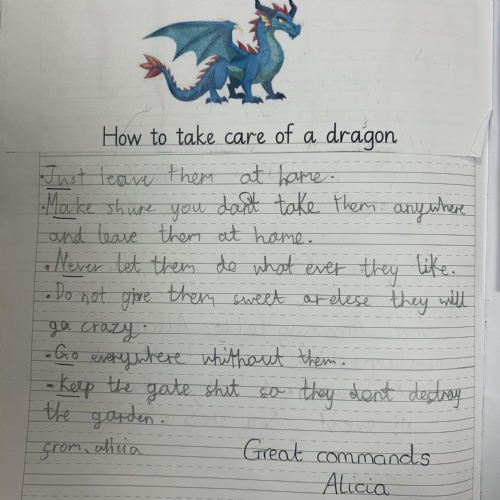 How to take care of a dragon
• Just leave them at home.
• Make shure you don't take them anywhere
and leave them at home.
• Never let them do what ever they like.
• Do not give them sweet or elese they will
go crazy.
• Go everywhere whithout them.
• Keep the gate shut so they dont destroy
the garden.
from, alicia
Great commands
Alicia